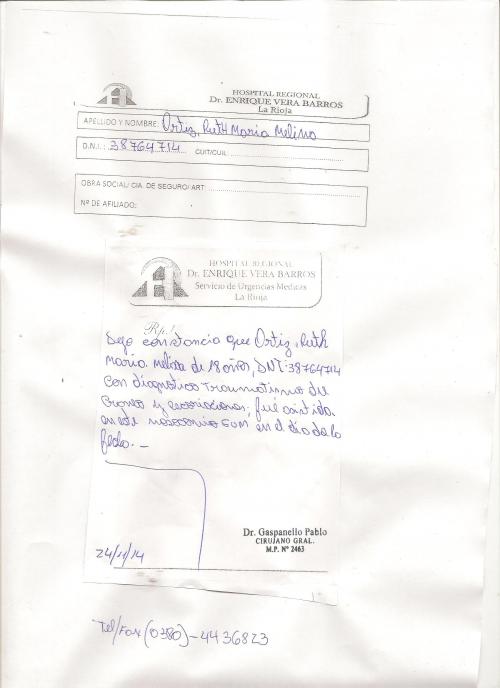 HOSPITAL REGIONAL
Dr. ENRIQUE VERA BARROS
La Rioja
APELLIDO Y NOMBRE: Ortiz, Ruth Maria Melina
D.N.I.: 38764714 CUIT/CUIL:
OBRA SOCIAL/ CIA. DE SEGURO/ ART
Nº DE AFILIADO:
HOSPITAL REGIONAL
Dr. ENRIQUE VERA BARROS
Servicio de Urgencias Medicas
La Rioja
Rp./
Dejo constancia que Ortiz, Ruth
Maria Melisa de 18 años, DNI: 38764714
con diagnostico traumatismo de
craneo y escoriaciones, fué asistida
en este nosocomio en el dia de la
fecha. _
Dr. Gaspanello Pablo
CIRUJANO GRAL.
M.P. Nº 2463
24/11/14
Tel/Fax (0380) - 4436823